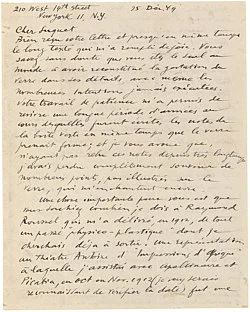 210 West 14th street
New York 11. N.Y.
25 Déc. 49
Cher Suquet
Bien reçu votre lettre et presqu'en même temps
le long texte qui m'a rempli de joie. Vous
savez sans doute que vous êtes le seul au
monde à avoir reconstitué la gestation du
verre dans ses détails, avec même les
nombreuses intentions jamais exécutées.
Votre travail de patience m'a permis de
revivre une longue période d'années au
cours desquelles furent écrites les notes de
la boîte verte en même temps que le verre
prenait forme; et je vous avoue que
n'ayant pas relu ces notes depuis très longtemps
j'avais perdu complètement souvenir de
nombreux points pas illustrés sur le
verre, qui m'enchantent encore.
Une chose importante pour vous est que
vous sachiez combien je dois à Raymond
Roussel qui m'a délivré en 1912, de tout
un passé "physico-plastique" dont je
cherchais déjà à sortir. Une représentation
au Théâtre Antoine d'"Impressions d'Afrique"
à laquelle j'assistai avec Apollinaire et
Picabia, en oct ou Nov. 1912 (je vous serais
reconnaissant de vérifier la date) fut une